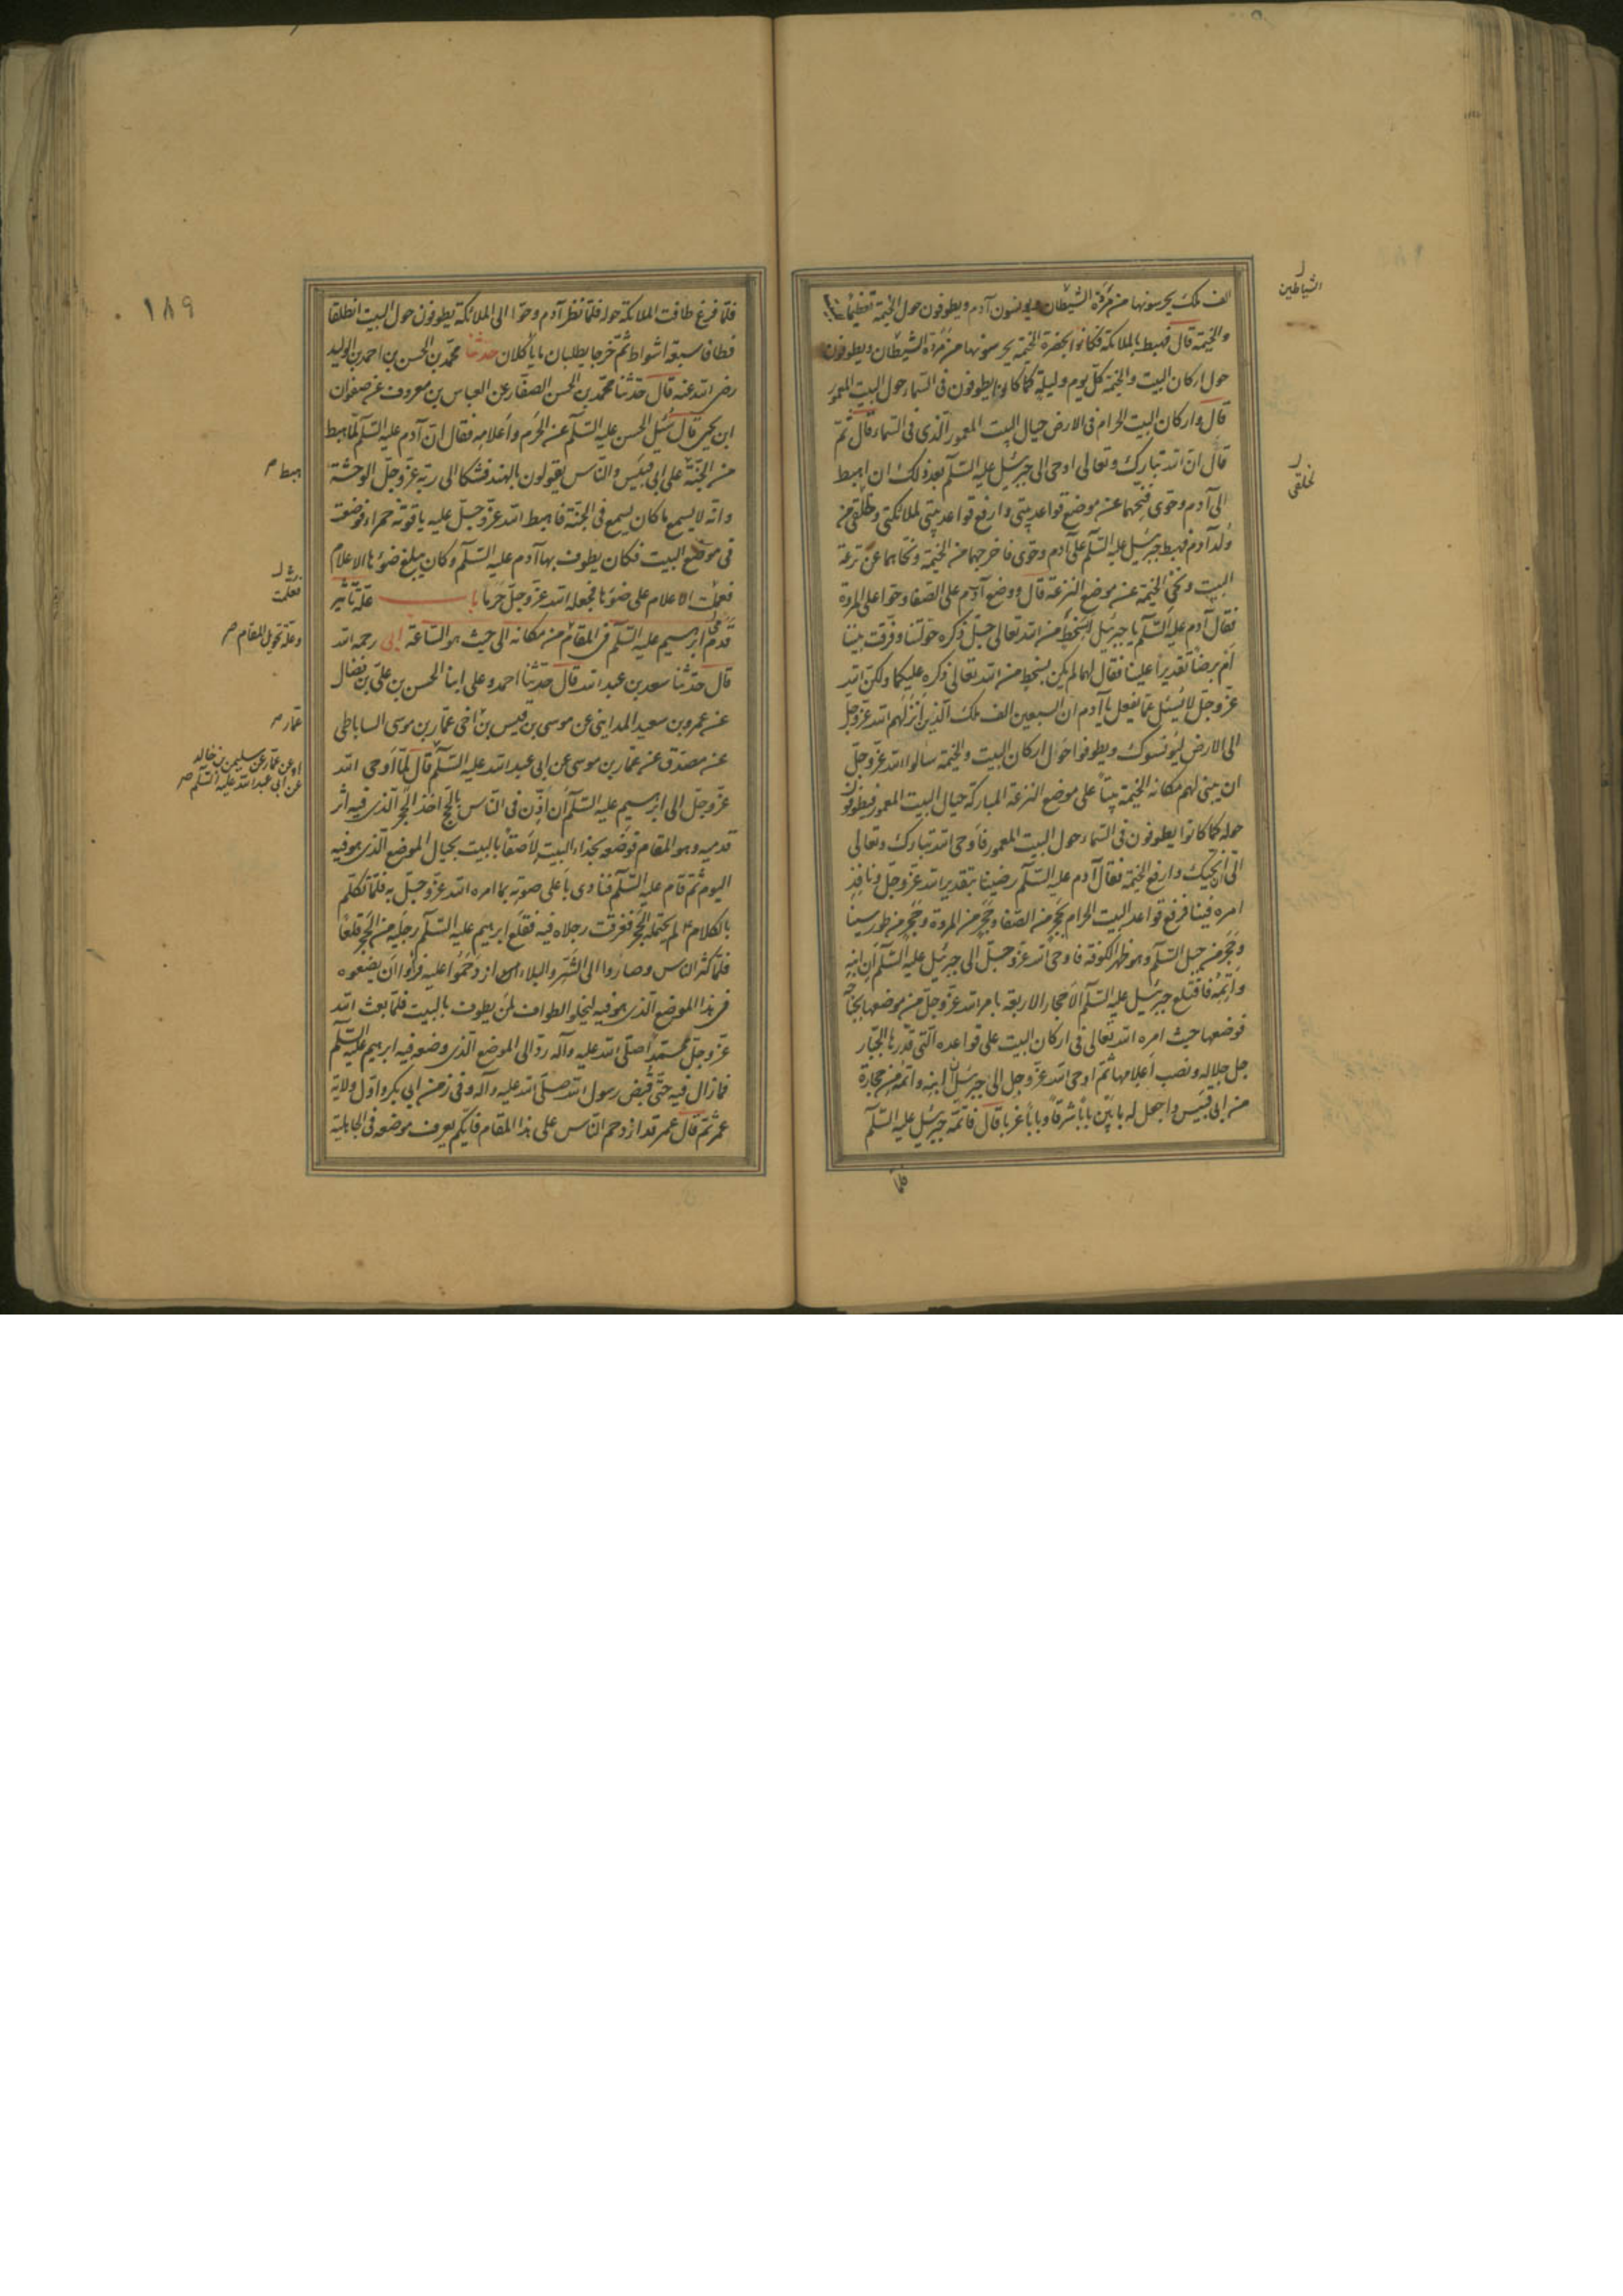 الف ملك يحرسونها من مردة الشيطان ويونسون آدم ويطوفون حول الخيمة تعظيما للبيت
والخيمة قال فهبط بالملائكة فكانوا بحضرة الخيمة يحرسونها من مردة الشيطان ويطوفون
حول اركان البيت والخيمة كل يوم وليلة كما كانوا يطوفون فى السماء حول البيت المعمور
قال واركان البيت الحرام فى الارض حيال البيت المعمور الذى فى السماء قال ثم
قال ان الله تبارك وتعالى اوحى الى جبرئيل عليه السلام بعد ذلك ان اهبط
الى آدم وحوى فنحهما عن موضع قواعد بيتى وارفع قواعد بيتى لملائكتى وخلقى من
ولد آدم فهبط جبرئيل عليه السلام على آدم وحوى فاخرجهما من الخيمة ونحاهما عن ترعة
البيت ونحى الخيمة عن موضع الترعة قال ووضع آدم على الصفا وحوا على المروة
فقال آدم عليه السلام يا جبرئيل ابسخط من الله تعالى جل ذكره حولتنا وفرقت بيننا
ام برضا تقديرا علينا فقال لهما لم يكن بسخط من الله تعالى ذكره عليكما ولكن الله
عز وجل لا يسئل عما يفعل يا آدم ان السبعين الف ملك الذين انزلهم الله عز وجل
الى الارض ليونسوك ويطوفوا حول اركان البيت والخيمة سالوا الله عز وجل
ان يبنى لهم مكان الخيمة بيتا على موضع الترعة المباركة حيال البيت المعمور فيطوفون
حوله كما كانوا يطوفون فى السماء حول البيت المعمور فاوحى الله تبارك وتعالى
الى ان انحيك وارفع الخيمة فقال آدم عليه السلام رضينا بتقدير الله عز وجل ونافذ
امره فينا فرفع قواعد البيت الحرام بحجر من الصفا وحجر من المروة وحجر من طور سينا
وحجر من جبل السلام وهو ظهر الكوفة فاوحى الله عز وجل الى جبرئيل عليه السلام ان ابنه
واتمه فاقتلع جبرئيل عليه السلام الاحجار الاربعة بامر الله عز وجل من موضعها بجناحه
فوضعها حيث امره الله تعالى فى اركان البيت على قواعده التى قدرها الجبار
جل جلاله ونصب اعلامها ثم اوحى الله عز وجل الى جبرئيل ان ابنه واتمه من حجارة
من ابى قبيس واجعل له بابين بابا شرقا وبابا غربا قال فاتمه جبرئيل عليه السلام
فلما
الشياطين ل
لخلقى ل
١٨٩
فلما فرغ طافت الملائكة حوله فلما نظر آدم وحوا الى الملائكة يطوفون حول البيت انطلقا
فطافا سبعة اشواط ثم خرجا يطلبان ما ياكلان حدثنا محمد بن الحسن بن احمد بن الوليد
رضى الله عنه قال حدثنا محمد بن الحسن الصفار عن العباس بن معروف عن صفوان
ابن يحيى قال سئل الحسن عليه السلام عن الحرم واعلامه فقال ان آدم عليه السلام لما هبط
من الجنة على ابى قبيس والناس يقولون بالهند فشكا الى ربه عز وجل الوحشة
وانه لا يسمع ما كان يسمع فى الجنة فاهبط الله عز وجل عليه ياقوتة حمراء فوضعت
فى موضع البيت فكان يطوف بها آدم عليه السلام وكان يبلغ ضوئها الاعلام
فعملت الاعلام على ضوئها فجعله الله عز وجل حرما باب علة تاثير
قدمى ابرهيم عليه السلام فى المقام من مكانه الى حيث هو الساعة ابى رحمه الله
قال حدثنا سعد بن عبد الله قال حدثنا احمد وعلى ابنا الحسن بن على بن فضال
عن عمرو بن سعيد المداينى عن موسى بن قيس بن اخى عمار بن موسى الساباطى
عن مصدق عن عمار بن موسى عن ابى عبد الله عليه السلام قال لما اوحى الله
عز وجل الى ابرهيم عليه السلام ان اذن فى الناس بالحج اخذ الحجر الذى فيه اثر
قدميه وهو المقام فوضعه بحذاء البيت لاصقا بالبيت بحيال الموضع الذى هو فيه
اليوم ثم قام عليه السلام فنادى باعلى صوته بما امره الله عز وجل به فلما تكلم
بالكلام لم يحتمله الحجر فغرقت رجلاه فيه فقلع ابرهيم عليه السلام رجليه من الحجر قلعا
فلما كثر الناس وصاروا الى الشر والبلاء ازدحموا عليه فراوا ان يضعوه
فى هذا الموضع الذى هو فيه ليخلو الطواف لمن يطوف بالبيت فلما بعث الله
عز وجل محمدا صلى الله عليه وآله رده الى الموضع الذى وضعه فيه ابرهيم عليه السلام
فما زال فيه حتى قبض رسول الله صلى الله عليه وآله وفى زمن ابى بكر واول ولاية
عمر ثم قال عمر قد ازدحم الناس على هذا المقام فايكم يعرف موضعه فى الجاهلية
هبط م
فعلمت
وعلة تحويل المقام صر
عمار صر
او عن عمار عن سليمن بن خالد
عن ابى عبد الله عليه السلم صر